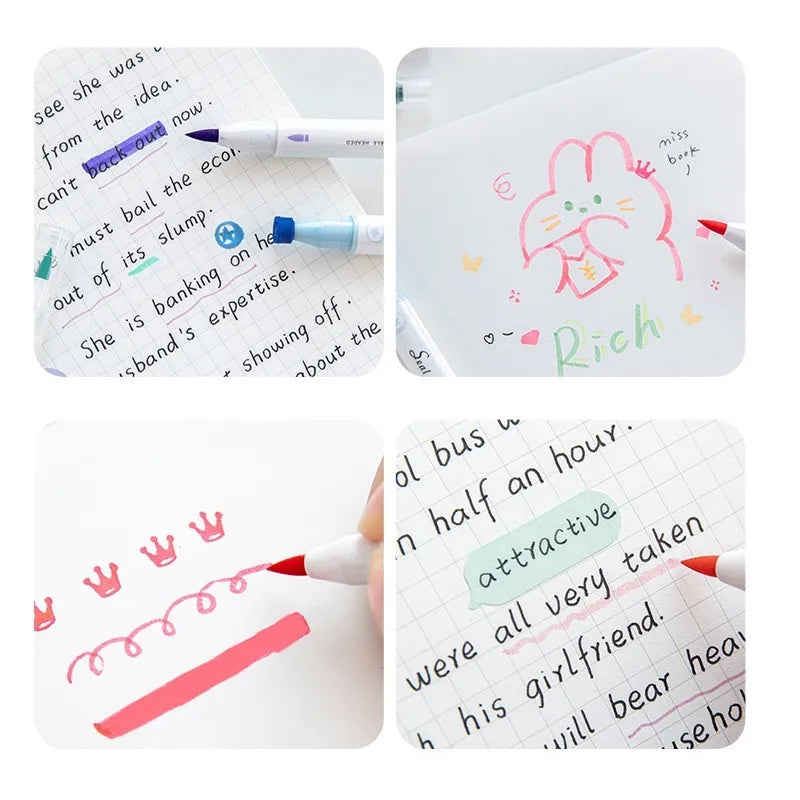 see she was
from the idea.
can't back out now.
must bail the
out of its slump.
She is banking on
expertise.
showing off.
about the
BLE HEADED
miss
book
Rich
Seal
bus
half an hour.
attractive
were all very taken
his girlfriend.
will bear